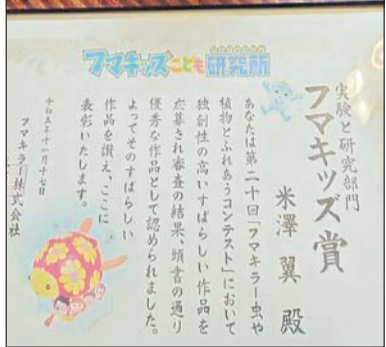 フマキッズこども研究所
実験と研究部門
フマキッズ賞
米澤 翼 殿
あなたは第二十回「フマキラー虫や
植物とふれあうコンテスト」において
独創性の高いすばらしい作品を
応募され審査の結果、頭書の通り
優秀な作品として認められました。
よってそのすばらしい
作品を讃え、ここに
表彰いたします。
令和五年十一月十七日
フマキラー株式会社